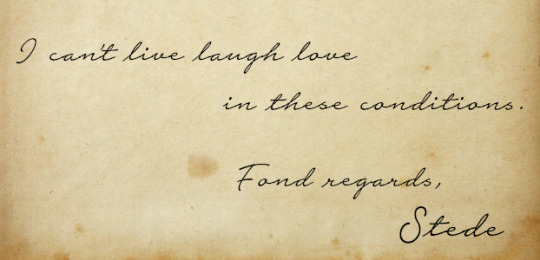 I can't live laugh love
in these conditions.
Fond regards,
Stede